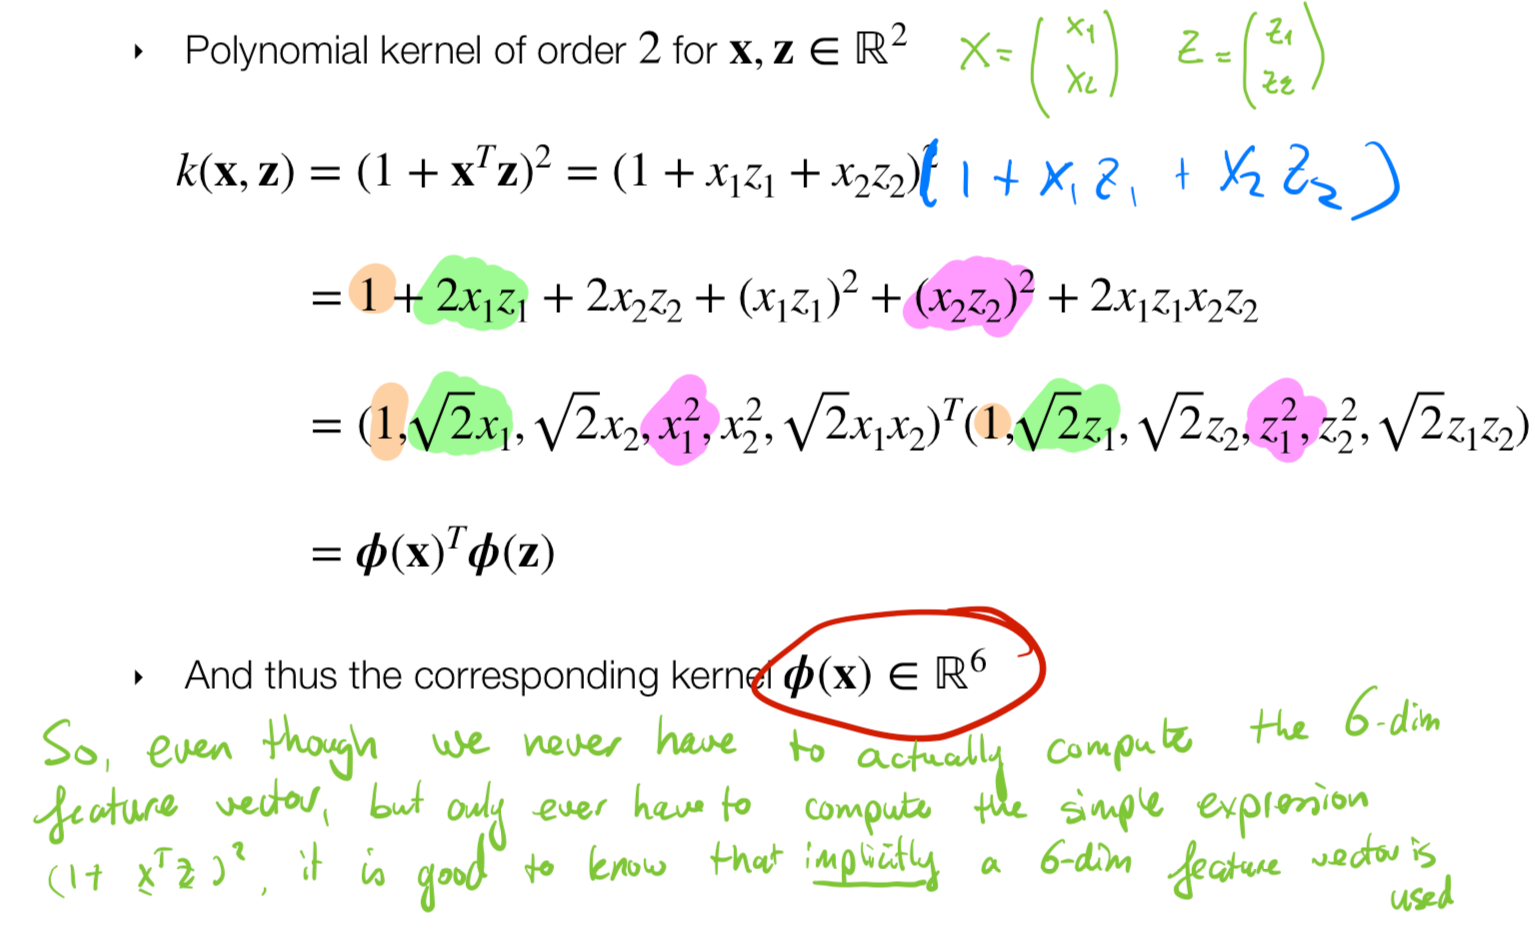 ‣ Polynomial kernel of order 2 for x, z ∈ ℝ² X = (x₁ x₂) Z = (z₁ z₂)
k(x, z) = (1 + xᵀz)² = (1 + x₁z₁ + x₂z₂)(1 + x₁z₁ + x₂z₂)
= 1 + 2x₁z₁ + 2x₂z₂ + (x₁z₁)² + (x₂z₂)² + 2x₁z₁x₂z₂
= (1, √2x₁, √2x₂, x₁², x₂², √2x₁x₂)ᵀ(1, √2z₁, √2z₂, z₁², z₂², √2z₁z₂)
= ϕ(x)ᵀϕ(z)
‣ And thus the corresponding kernel ϕ(x) ∈ ℝ⁶
So, even though we never have to actually compute the 6-dim
feature vector, but only ever have to compute the simple expression
(1+ xᵀz)², it is good to know that implicitly a 6-dim feature vector is
used